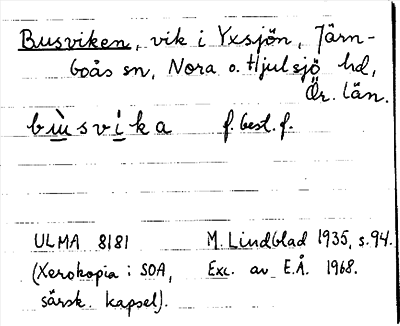 Busviken, vik i Yxsjön, Järn-
boås sn, Nora o. Hjulsjö hd,
Ör. län.
bù̲svì̲ka f. best. f.
ULMA 8181 M. Lindblad 1935, s. 94.
(Xerokopia i SOA, Exc. av E.Å. 1968.
särsk. kapsel).